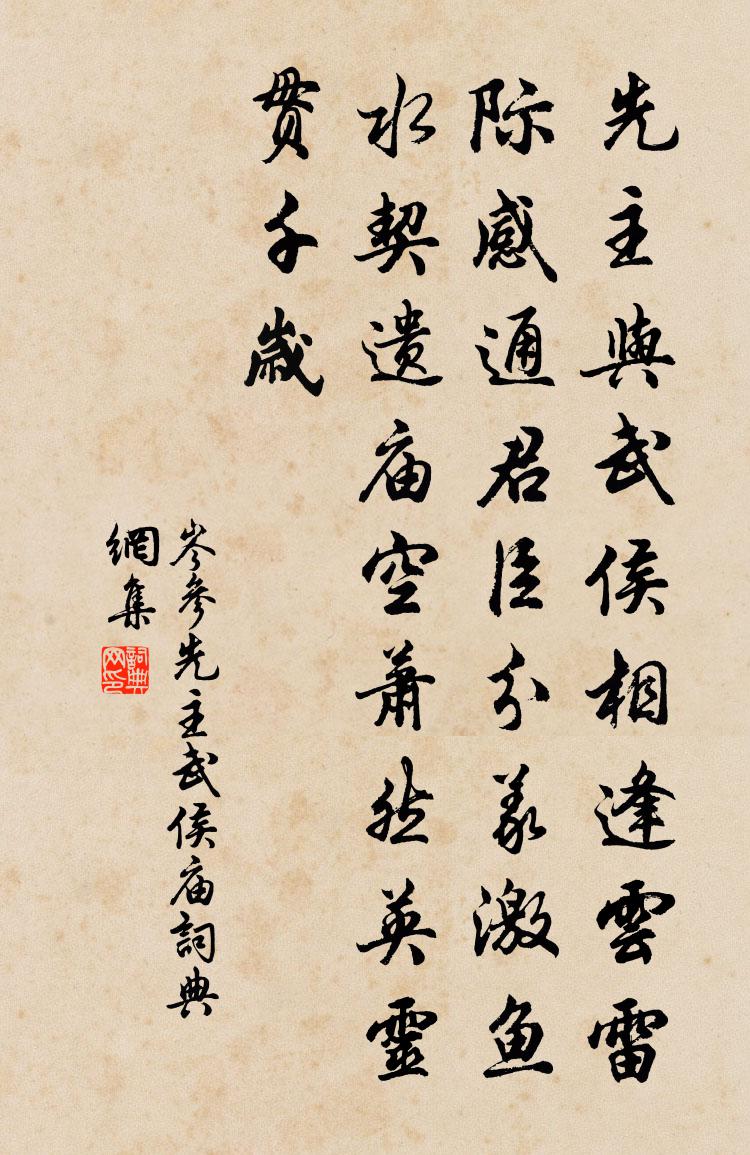 先主與武侯相逢雲雷
际感通君臣分義激魚
水契遗庙空蕭然英靈
贯千歲
岑參先主武侯庙詞典
網集
詞典
网印